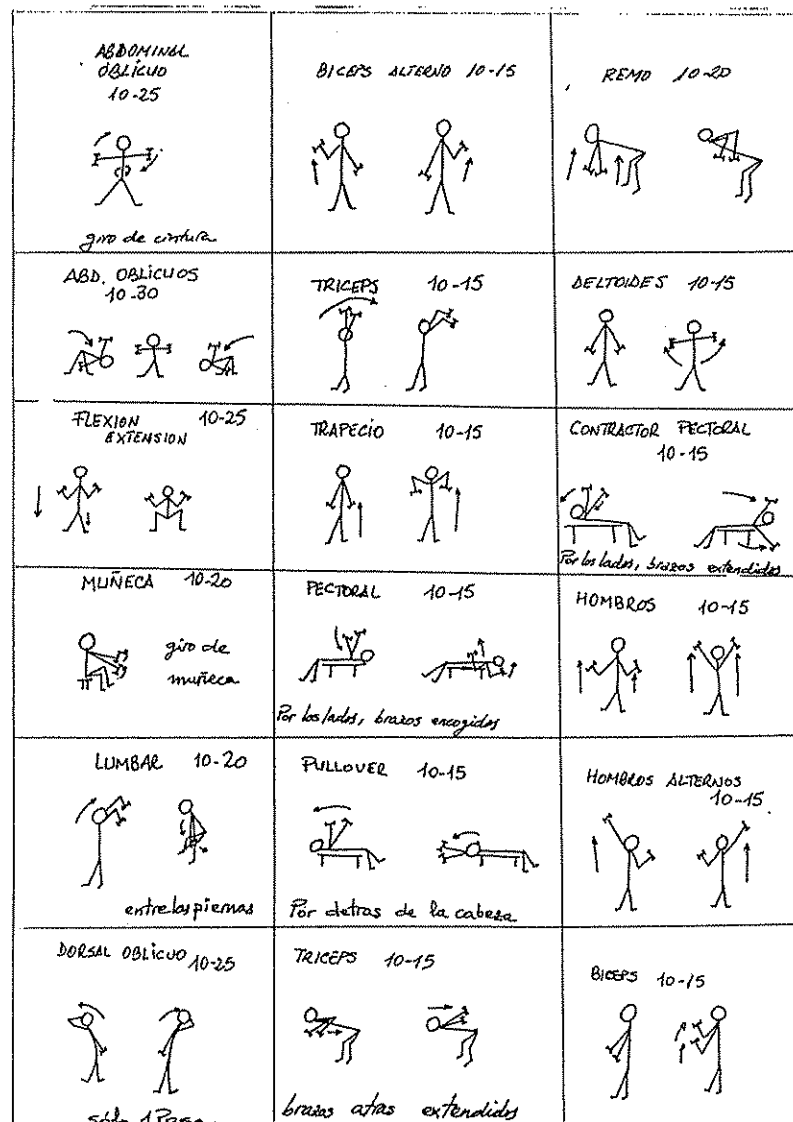 ABDOMINAL
OBLÍCUO
10-25
giro de cintura
BICEPS ALTERNO 10-15
REMO 10-20
ABD. OBLICUOS
10-30
TRICEPS 10-15
DELTOIDES 10-15
FLEXION 10-25
EXTENSION
TRAPECIO 10-15
CONTRACTOR PECTORAL
10-15
Por los lados, brazos extendidos
MUÑECA 10-20
giro de
muñeca
PECTORAL 10-15
Por los lados, brazos encogidos
HOMBROS 10-15
LUMBAR 10-20
entre las piernas
PULLOVER 10-15
Por detras de la cabeza
HOMBROS ALTERNOS
10-15
DORSAL OBLÍCUO 10-25
sólo 1
TRICEPS 10-15
brazos atras extendidos
BICEPS 10-15